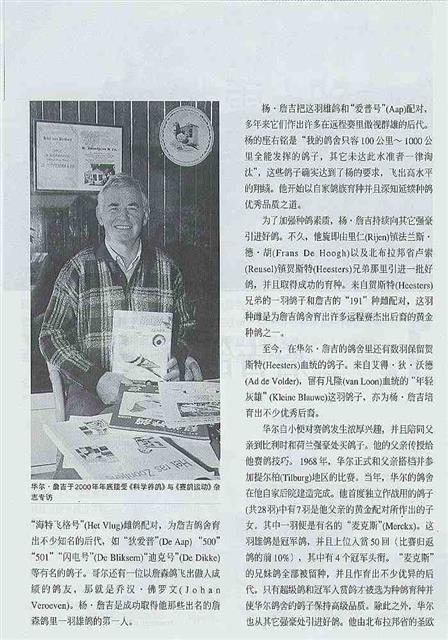 华尔·詹吉于2000年年底接受《科学养鸽》与《赛鸽运动》杂
志专访
“海特飞格号”(Het Vlug)雌鸽配对，为詹吉鸽舍育
出不少知名的后代，如“狄爱普”(De Aap) “500”
“501” “闪电号”(De Bliksem)“迪克号”(De Dikke)
等有名的鸽子。哥尔还有一位以詹森鸽飞出傲人成
绩的鸽友，那就是乔汉·佛罗文(Johan
Veroeven)。杨·詹吉是成功取得他那些出名的詹
森鸽里一羽雄鸽的第一人。
杨·詹吉把这羽雄鸽和“爱普号”(Aap)配对，
多年来它们作出许多在远程赛里傲视群雄的后代。
杨的座右铭是“我的鸽舍只容100公里～1000公
里全能发挥的鸽子，其它未达此水准者一律淘
汰”，这些鸽子确实达到了杨的要求，飞出高水平
的翔绩。他开始以自家鸽族育种并且深知延续种鸽
优秀品质之道。
为了加强种鸽素质，杨·詹吉持续向其它强豪
引进好鸽。不久，他旋即由里仁(Rijen)镇法兰斯·
德·胡(Frans De Hoogh)以及北布拉邦省卢索
(Reusel)镇贺斯特(Heesters)兄弟那里引进一批好
鸽，并且取得成功的育种。来自贺斯特(Heesters)
兄弟的一羽鸽子和詹吉的“191”种雌配对，这羽
种雌是为詹吉鸽舍育出许多远程赛杰出后裔的黄金
种鸽之一。
至今，在华尔·詹吉的鸽舍里还有数羽保留贺
斯特(Heesters)血统的鸽子。来自艾得·狄·沃德
(Ad de Volder)，留有凡隆(van Loon)血统的“年轻
灰雄”(Kleine Blauwe)这羽鸽子，亦为杨·詹吉培
育出不少优秀后裔。
华尔自小便对赛鸽发生浓厚兴趣，并且陪同父
亲到比利时和荷兰强豪处买鸽子。他的父亲传授给
他赛鸽技巧。1968年，华尔正式和父亲搭档并参
加提尔柏(Tilburg)地区的比赛。当年，华尔的鸽舍
在他自家后院建造完成。他首度独立作战用的鸽子
(共28羽)中有7羽是他父亲的黄金配对所作出的子
女。其中一羽便是有名的“麦克斯”(Merckx)。这
羽雄鸽是冠军鸽，并且上位入赏50回（比赛归返
鸽的前10%），其中有4个冠军头衔。“麦克斯”
的兄妹鸽全部被留种，并且作育出不少优异的后
代，只有超级鸽和冠军入赏鸽才被选为种鸽育种并
使华尔鸽舍的鸽子保持高级品质。除此之外，华尔
也从其它强豪处引进好鸽。他由北布拉邦省的圣欧